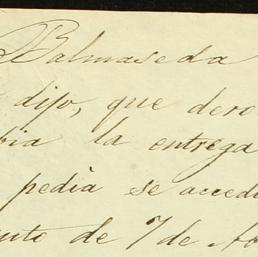 Balmaseda
dijo, que dero
bia la entrega
pedia se acced
ento de 7 de Ab